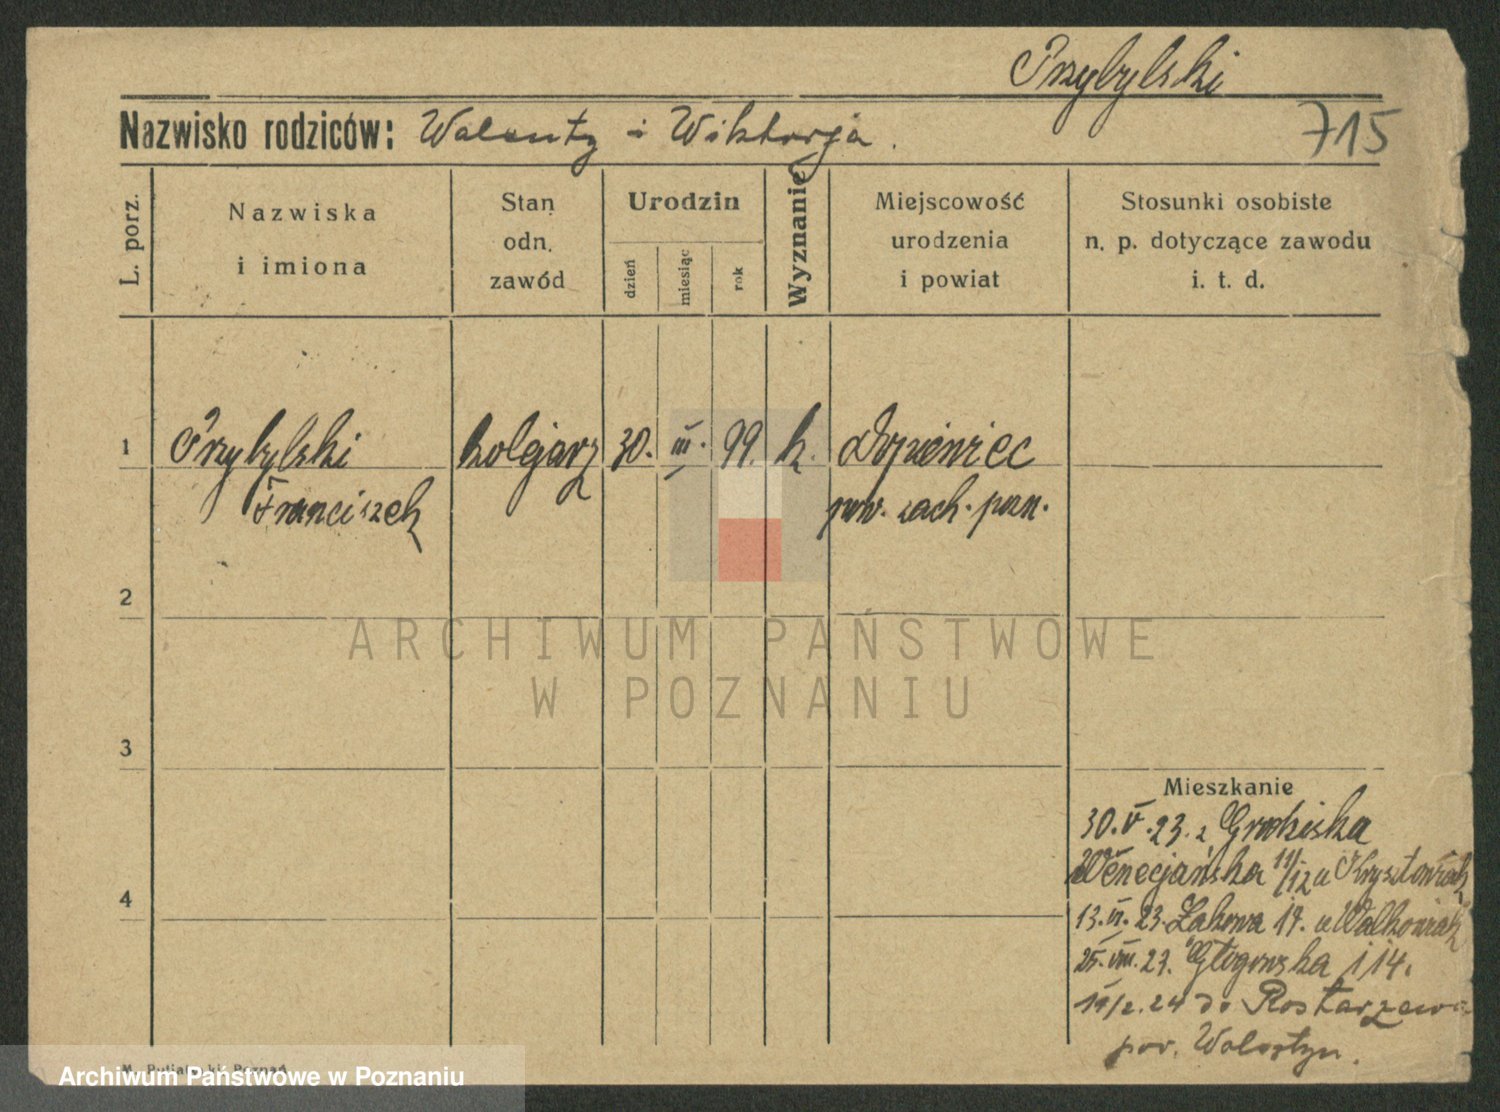 Przybylski
Nazwisko rodziców: Walenty i Wiktorja.
715
L. porz.
Nazwiska
i imiona
Stan
odn.
zawód
Urodzin
dzień
miesiąc
rok
Wyznanie
Miejscowość
urodzenia
i powiat
Stosunki osobiste
n. p. dotyczące zawodu
i. t. d.
1 Przybylski kolejarz 30. III. 99. k. Dopieniec
Franciszek pow. zach. pozn.
2
ARCHIWUM PAŃSTWOWE
W POZNANIU
3
Mieszkanie
30. V. 23. z Grodziska
Wenecjańska 11/12 u Krysztowiak
4
13. VI. 23. Łakowa 14. u Walkowiak
25. VIII. 23. Głogowska 114.
2.24 do Rostarzewa
pow. Wolsztyn.
Poznań
Archiwum Państwowe w Poznaniu